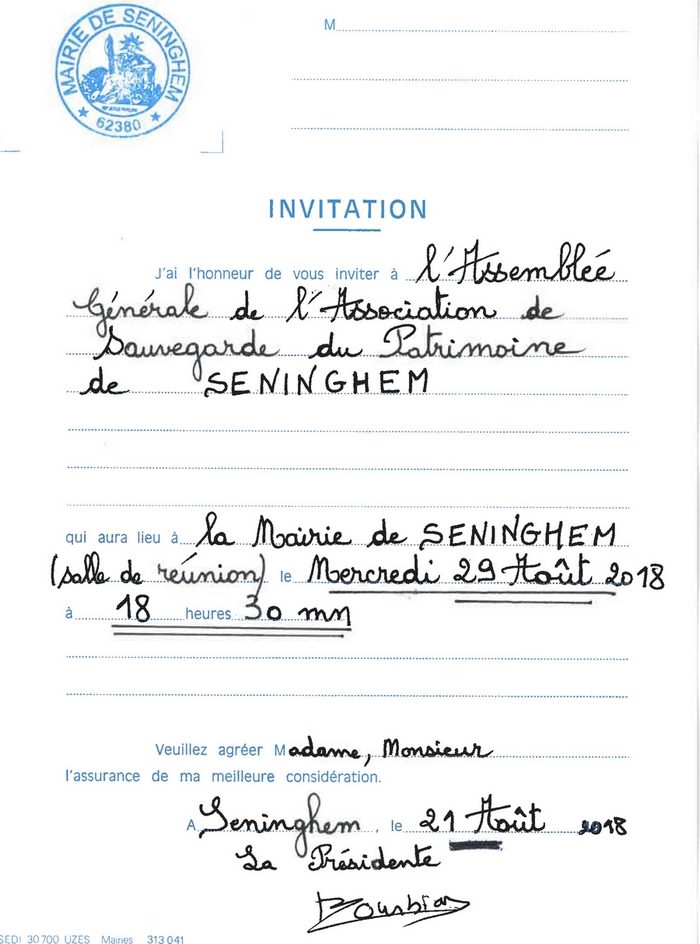 MAIRIE DE SENINGHEM
62380
M
INVITATION
J'ai l'honneur de vous inviter à l'Assemblée
Générale de l'Association de
Sauvegarde du Patrimoine
de SENINGHEM
qui aura lieu à la Mairie de SENINGHEM
(salle de réunion) le Mercredi 29 Août 2018
à 18 heures 30 mn
Veuillez agréer Madame, Monsieur
l'assurance de ma meilleure considération.
A Seninghem, le 21 Août 2018
La Présidente
SEDI 30700 UZES Mairies 313 041